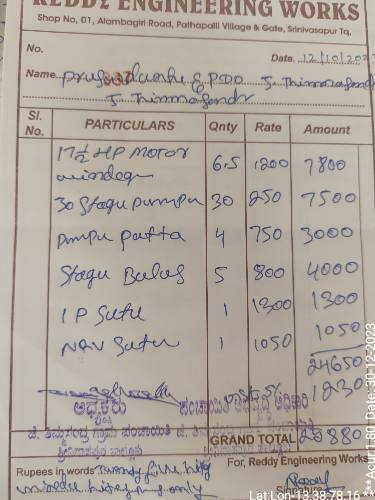 REDDY ENGINEERING WORKS
Shop No, 01, Alambagiri Road, Pathapalli Village & Gate, Srinivasapur Tq,
No.
Date. 12/10/202
Name. & PDO J. Thimmasandr
J. Thimmasandr
Sl. No. PARTICULARS Qnty Rate Amount
17½ HP Motor 6.5 1200 7800
30 Stagu pumpu 30 250 7500
pumpu patta 4 750 3000
Stagu 5 800 4000
1 P Sutu 1 1300 1300
NRV Sutu 1 1050 1050
24650
1230
ಅಧ್ಯಕ್ಷರು ಪಂಚಾಯಿತಿ ಅಭಿವೃದ್ಧಿ ಅಧಿಕಾರಿ
ಜೆ. ತಿಮ್ಮಸಂದ್ರ ಗ್ರಾಮ ಪಂಚಾಯಿತಿ ಜೆ. ತಿಮ್ಮಸಂದ್ರ ಗ್ರಾಮ ಪಂಚಾಯಿತಿ
GRAND TOTAL 25880
Rupees in words Twenty five For, Reddy Engineering Works
only
Lat:Lon- 13.38,78.16
Date: 30-12-2023